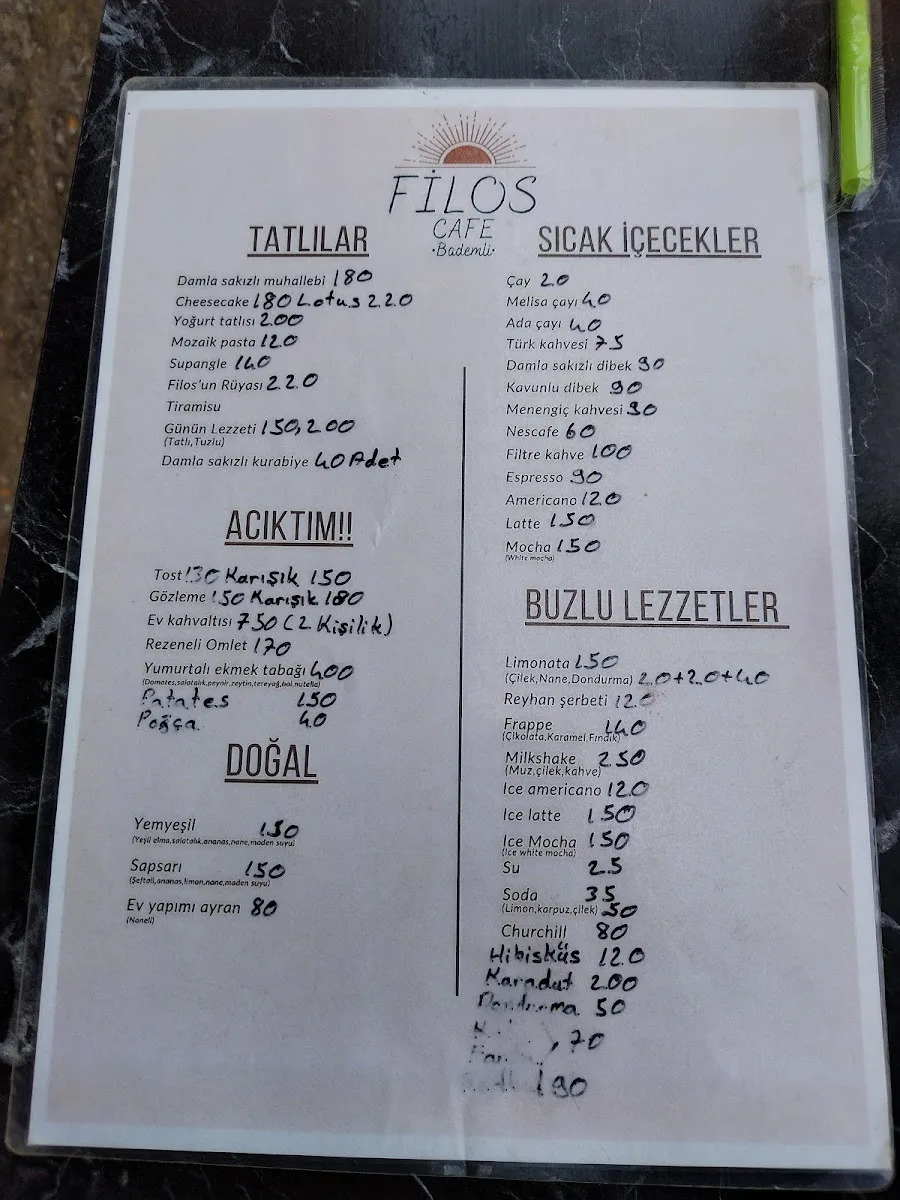 FİLOS
CAFE
·Bademli·
TATLILAR
Damla sakızlı muhallebi 180
Cheesecake 180 Lotus 220
Yoğurt tatlısı 200
Mozaik pasta 120
Supangle 140
Filos'un Rüyası 220
Tiramisu
Günün Lezzeti 150,200
(Tatlı,Tuzlu)
Damla sakızlı kurabiye 40 Adet
ACIKTIM!!
Tost 130 Karışık 150
Gözleme 150 Karışık 180
Ev kahvaltısı 750 (2 Kişilik)
Rezeneli Omlet 170
Yumurtalı ekmek tabağı 400
(Domates,salatalık,peynir,zeytin,tereyağ,bal,nutella)
Patates 150
Poğça 40
DOĞAL
Yemyeşil 150
(Yeşil elma,salatalık,ananas,nane,maden suyu)
Sapsarı 150
(Şeftali,ananas,limon,nane,maden suyu)
Ev yapımı ayran 80
(Naneli)
SICAK İÇECEKLER
Çay 20
Melisa çayı 40
Ada çayı 40
Türk kahvesi 75
Damla sakızlı dibek 90
Kavunlu dibek 90
Menengiç kahvesi 90
Nescafe 60
Filtre kahve 100
Espresso 90
Americano 120
Latte 150
Mocha 150
(White mocha)
BUZLU LEZZETLER
Limonata 150
(Çilek,Nane,Dondurma) 20+20+40
Reyhan şerbeti 120
Frappe 140
(Çikolata,Karamel,Fındık)
Milkshake 250
(Muz,çilek,kahve)
Ice americano 120
Ice latte 150
Ice Mocha 150
(Ice white mocha)
Su 25
Soda 35
(Limon,karpuz,çilek) 50
Churchill 80
Hibisküs 120
Karadut 200
Dondurma 50
70
190